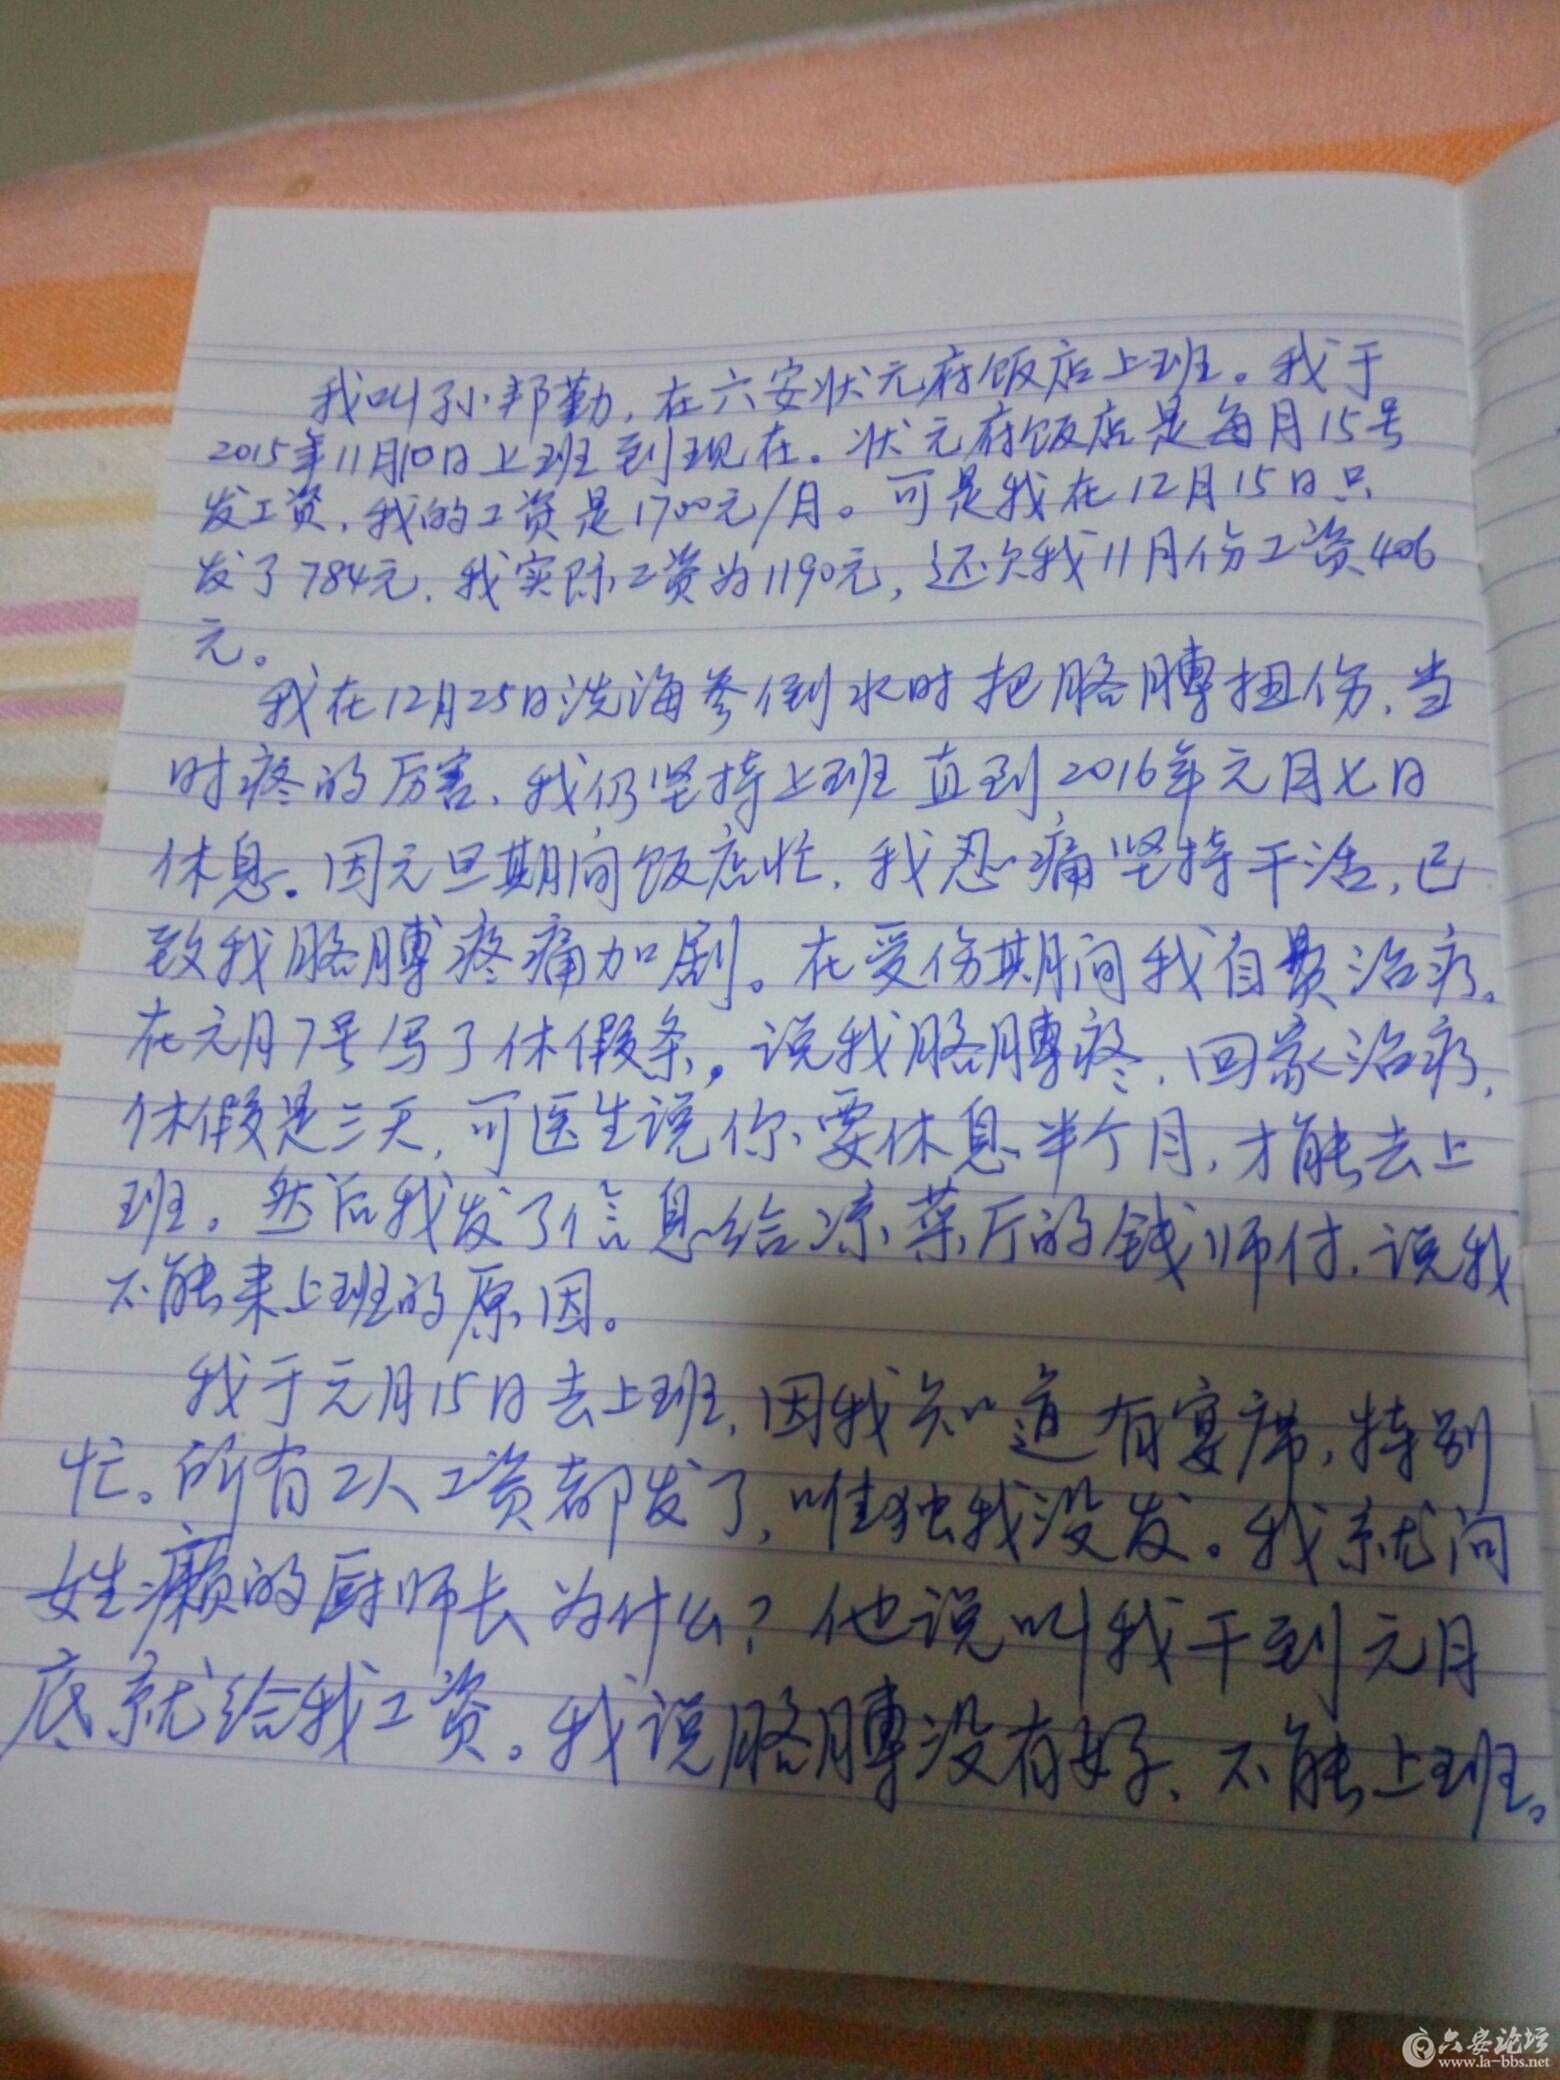 我叫孙邦勤，在六安状元府饭店上班。我于
2015年11月10日上班到现在。状元府饭店是每月15号
发工资，我的工资是1700元/月。可是我在12月15日只
发了784元，我实际工资为1190元，还欠我11月份工资406
元。
我在12月25日洗海参倒水时把胳膊扭伤，当
时疼的厉害，我仍坚持上班直到2016年元月七日
休息。因元旦期间饭店忙，我忍痛坚持干活，已
致我胳膊疼痛加剧。在受伤期间我自费治疗。
在元月7号写了休假条，说我胳膊疼，回家治疗，
休假是三天，可医生说你要休息半个月，才能去上
班。然后我发了信息给凉菜厅的钱师付，说我
不能来上班的原因。
我于元月15日去上班，因我知道有宴席，特别
忙。所有工人工资都发了，唯独我没发。我就问
姓癞的厨师长为什么？他说叫我干到元月
底就给我工资。我说胳膊没有好，不能上班。
六安论坛
www.la-bbs.net